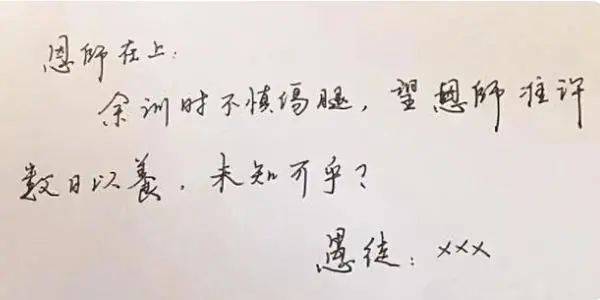 恩师在上:
余训时不慎伤腿，望恩师准许
数日以養，未知可乎?
愚徒: xxx